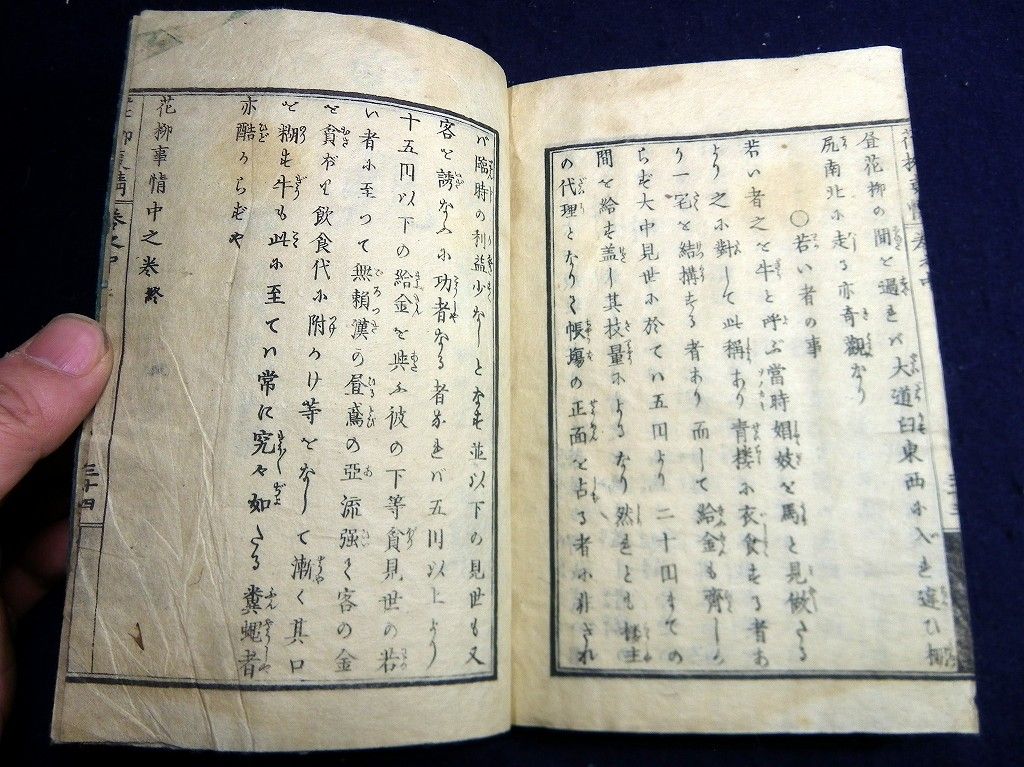 昼花柳の間を過れバ大道臼東西に入れ違ひ桐
尻南北に走る亦奇観なり
○若い者の事
若い者之を牛と呼ぶ當時娼妓を馬と見做さる
より之に對して此稱あり青楼に衣食する者あ
り一宅を結構する者あり而して給金も齊しか
らず大中見世に於てハ五円より二十円までの
間を給す蓋し其技量によるなり然れども楼主
の代理となりて帳塲の正面を占る者に非され
バ臨時の利益少なしとなす並以下の見世も又
客を誘なふに功者なる者なれバ五円以上より
十五円以下の給金を與ふ彼の下等貧見世の若
い者に至つて無頼漢の昼鳶の亜流强て客の金
を貪ぼり飲食代に附かけ等をなして漸く其口
を糊す牛も此に至てハ常に究々如たる糞蠅者
亦酷からずや
花柳事情中之巻終
花柳事情 巻之中
三十四